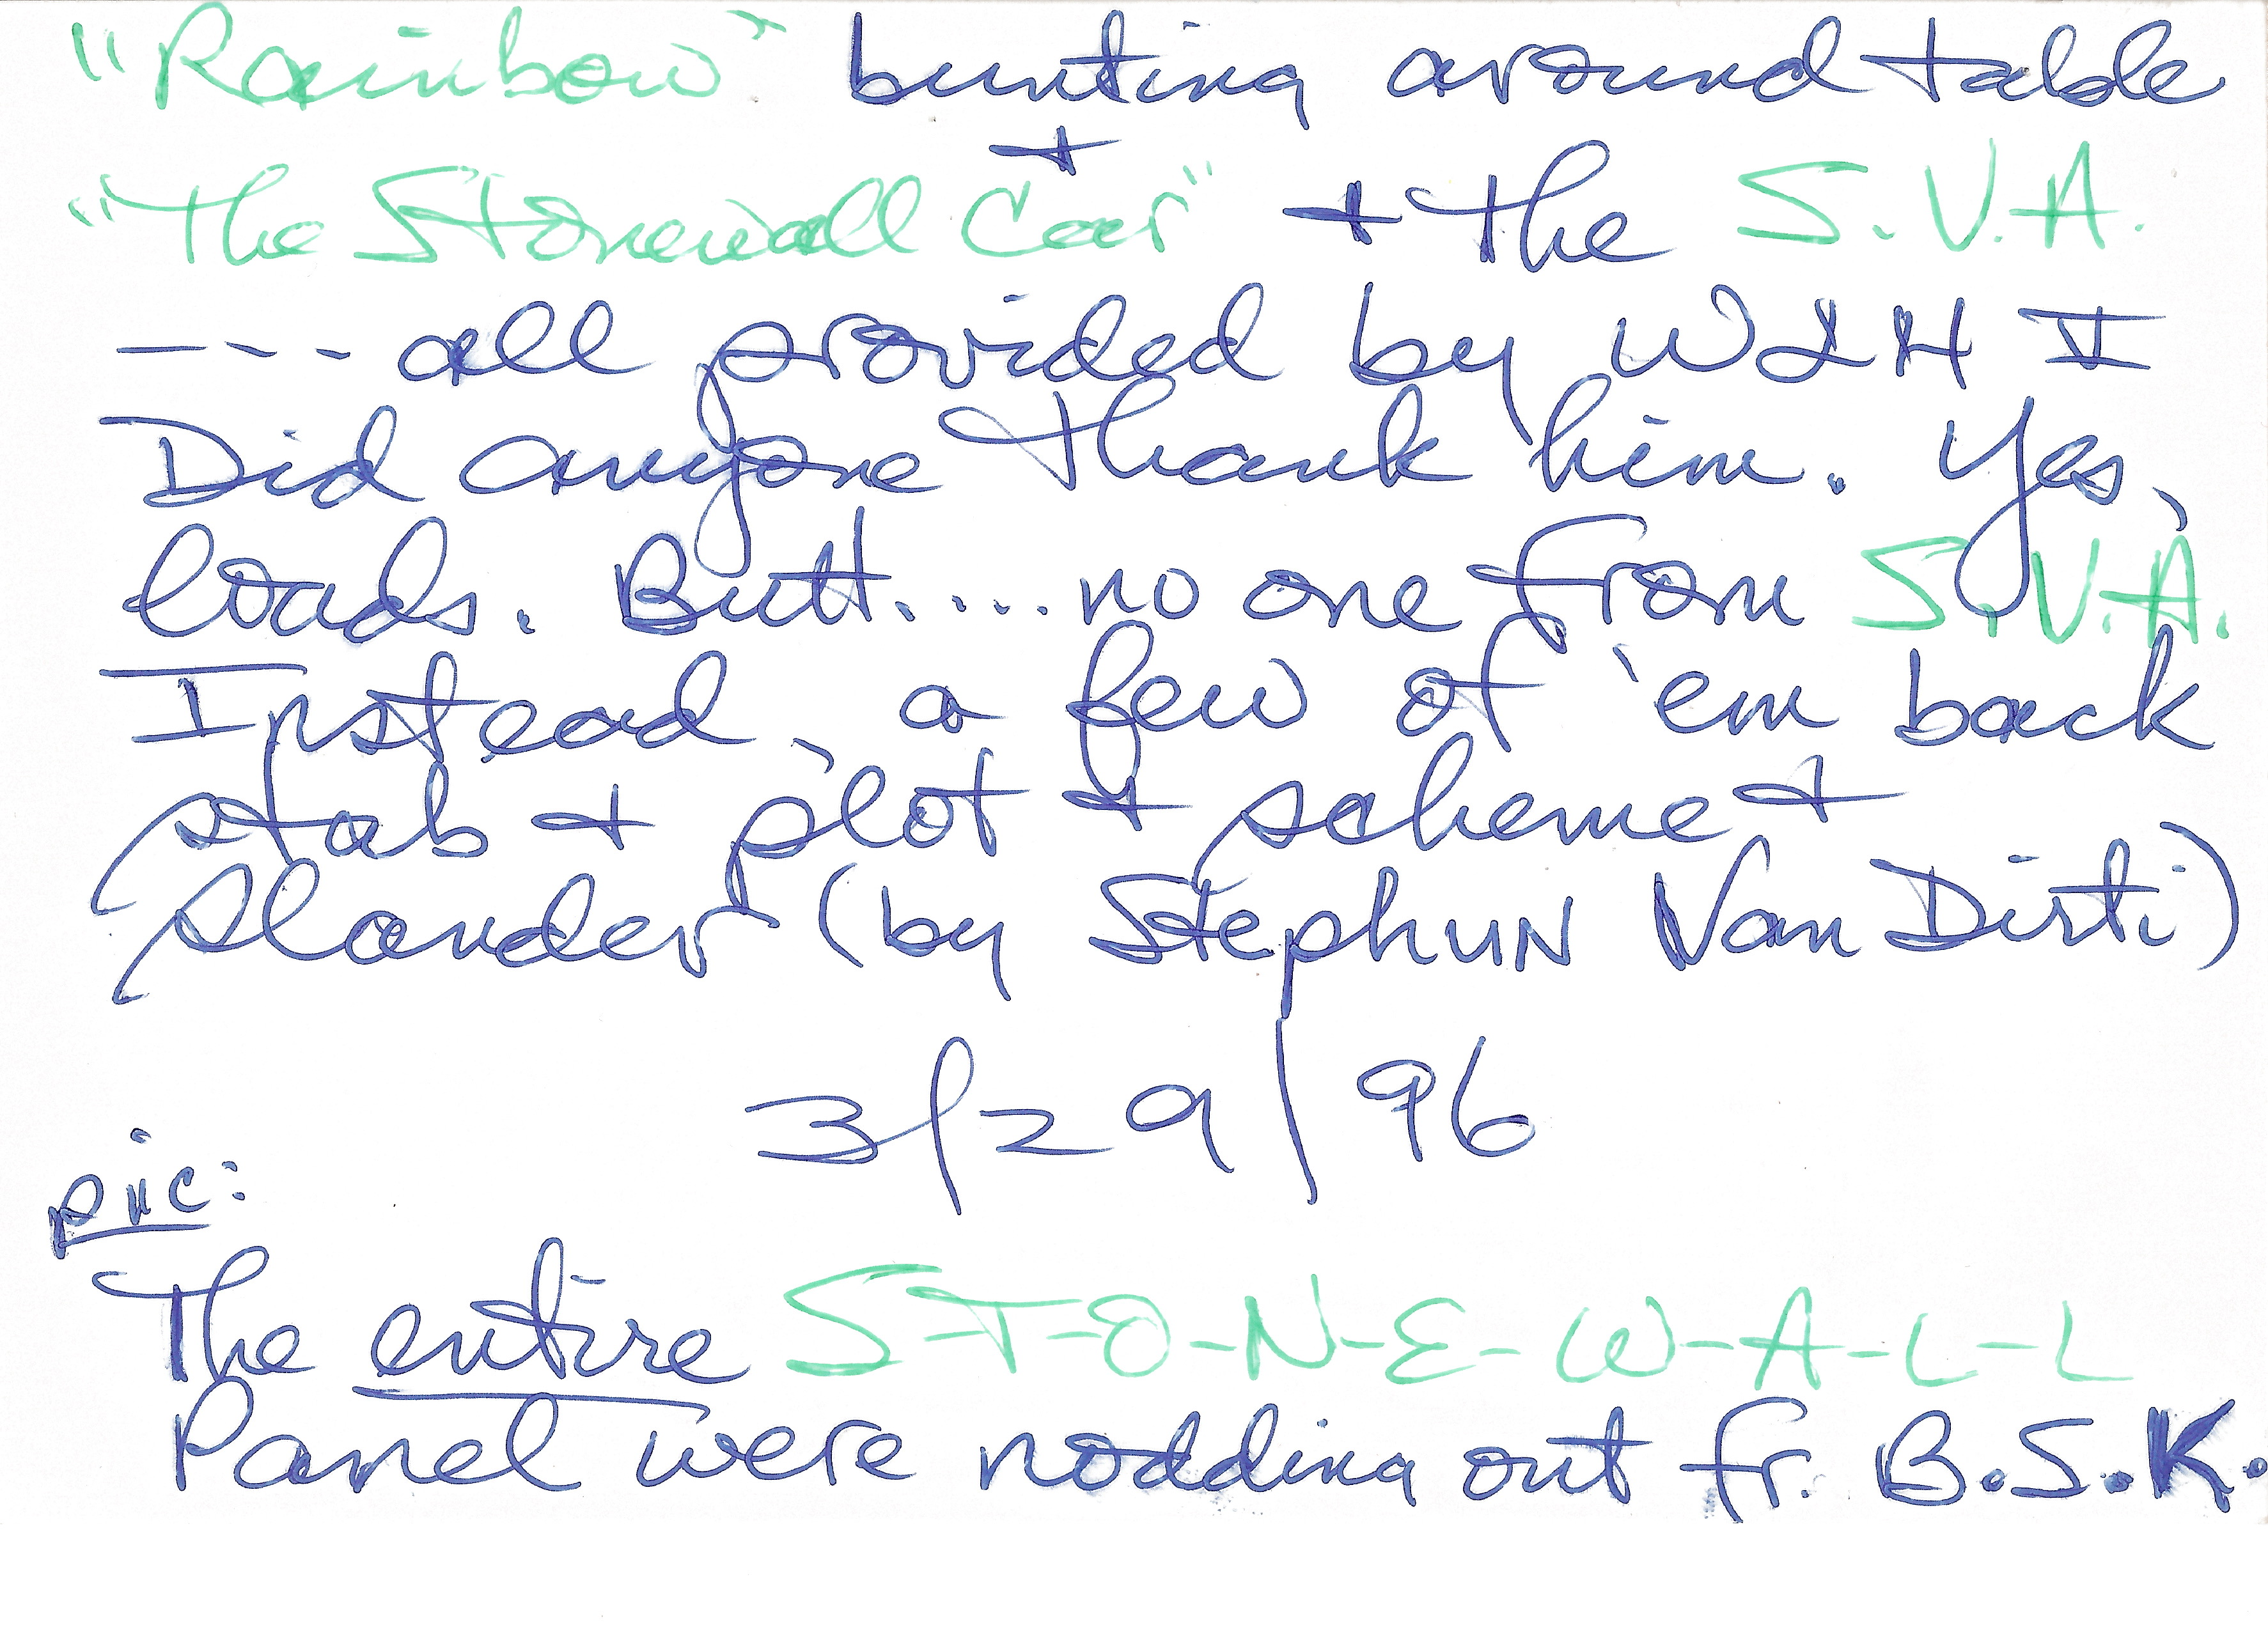 "Rainbow" bunting around table
+
"The Stonewall Car" + the S.V.A.
--- all provided by W&H II
Did anyone thank him. Yes,
loads. Butt..... no one from S.V.A.
Instead, a few of 'em back
stab + plot + scheme +
slander (by StephuN Van Dirti)
3/29/96
pic:
The entire S-T-O-N-E-W-A-L-L
Panel were nodding out fr. B.S.K.